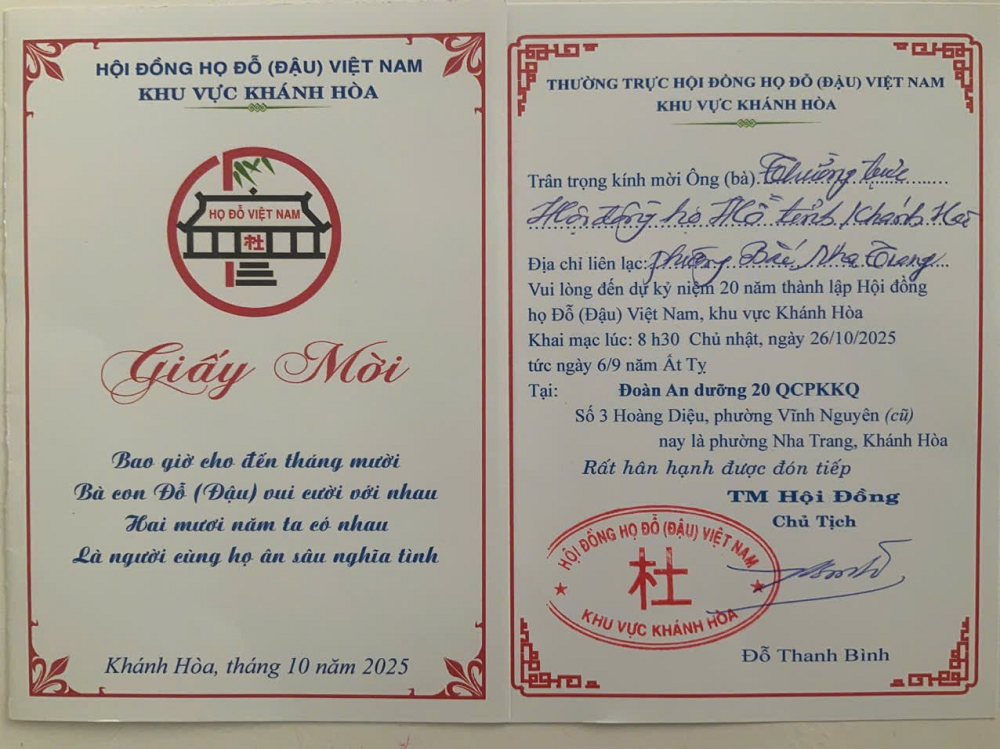 HỘI ĐỒNG HỌ ĐỖ (ĐẬU) VIỆT NAM
KHU VỰC KHÁNH HÒA
HỌ ĐỖ VIỆT NAM
杜
Giấy Mời
Bao giờ cho đến tháng mười
Bà con Đỗ (Đậu) vui cười với nhau
Hai mươi năm ta có nhau
Là người cùng họ ân sâu nghĩa tình
Khánh Hòa, tháng 10 năm 2025
THƯỜNG TRỰC HỘI ĐỒNG HỌ ĐỖ (ĐẬU) VIỆT NAM
KHU VỰC KHÁNH HÒA
Trân trọng kính mời Ông (bà). Thường trực
Hội đồng họ Đỗ tỉnh Khánh Hoà
Địa chỉ liên lạc: phường Bắc Nha Trang
Vui lòng đến dự kỷ niệm 20 năm thành lập Hội đồng
họ Đỗ (Đậu) Việt Nam, khu vực Khánh Hòa
Khai mạc lúc: 8 h30 Chủ nhật, ngày 26/10/2025
tức ngày 6/9 năm Ất Tỵ
Tại: Đoàn An dưỡng 20 QCPKKQ
Số 3 Hoàng Diệu, phường Vĩnh Nguyên (cũ)
nay là phường Nha Trang, Khánh Hòa
Rất hân hạnh được đón tiếp
TM Hội Đồng
Chủ Tịch
HỘI ĐỒNG HỌ ĐỖ (ĐẬU) VIỆT NAM
杜
KHU VỰC KHÁNH HÒA
Đỗ Thanh Bình